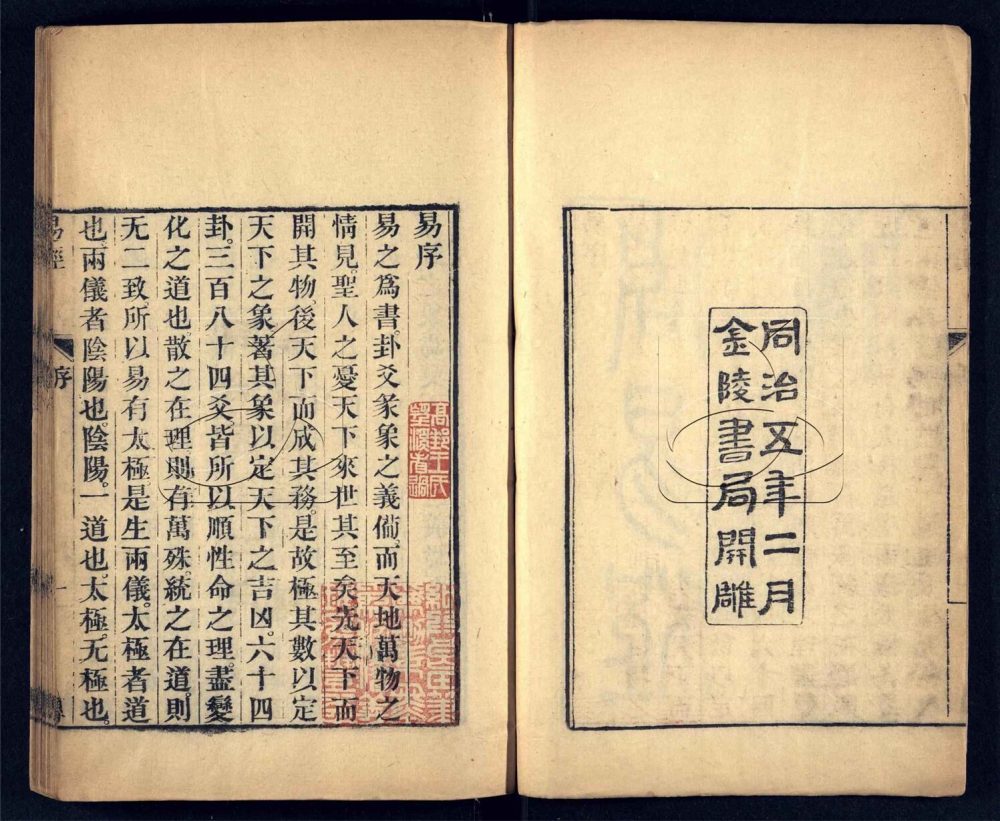 同治五年二月
金陵書局開雕
易序
易之爲書卦爻彖象之義備而天地萬物之
情見聖人之憂天下來世其至矣先天下而
開其物後天下而成其務是故極其數以定
天下之象著其象以定天下之吉凶六十四
卦三百八十四爻皆所以順性命之理盡變
化之道也散之在理則有萬殊統之在道則
无二致所以易有太極是生兩儀太極者道
也兩儀者陰陽也陰陽一道也太極无極也
易經
序
一
高郵王氏